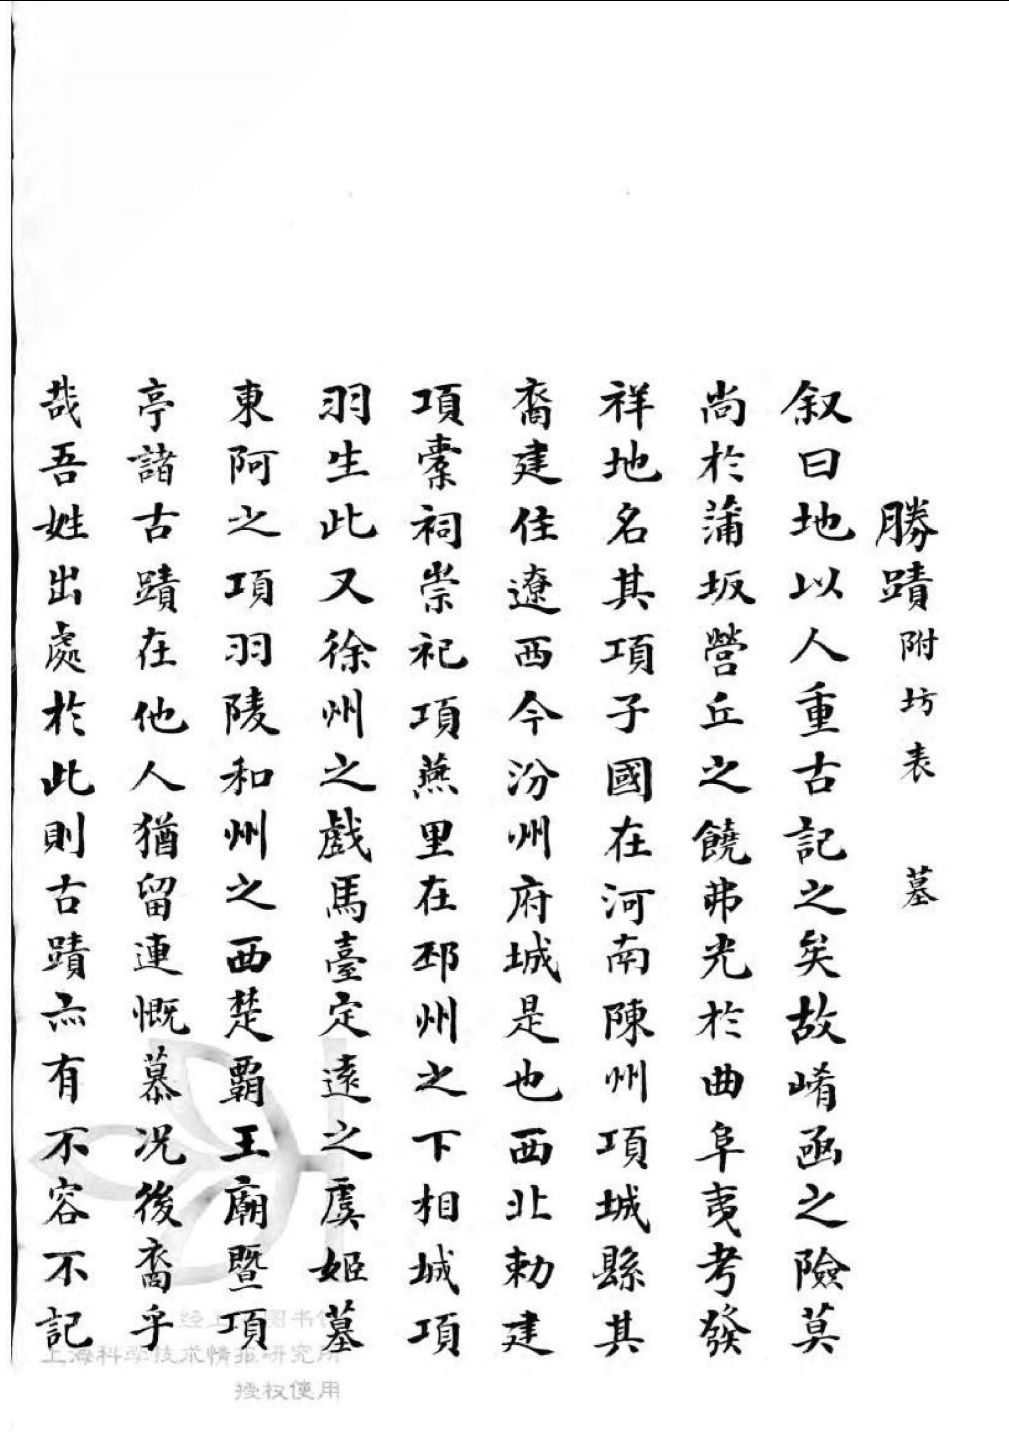 勝蹟附坊表 墓
叙曰地以人重古記之矣故崤函之險莫
尚於蒲坂營丘之饒弗光於曲阜夷考發
祥地名其項子國在河南陳州項城縣其
裔建住遼西今汾州府城是也西北勅建
項橐祠崇祀項燕里在邳州之下相城項
羽生此又徐州之戲馬臺定遠之虞姬墓
東阿之項羽陵和州之西楚霸王廟暨項
亭諸古蹟在他人猶留連慨慕况後裔乎
哉吾姓出處於此則古蹟亦有不容不記
上海科学技术情报研究所
授权使用